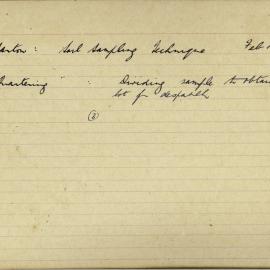 arton: Soil Sampling Technique Feb
uartering" : Dividing sample to obta
lot for despatch
(2)